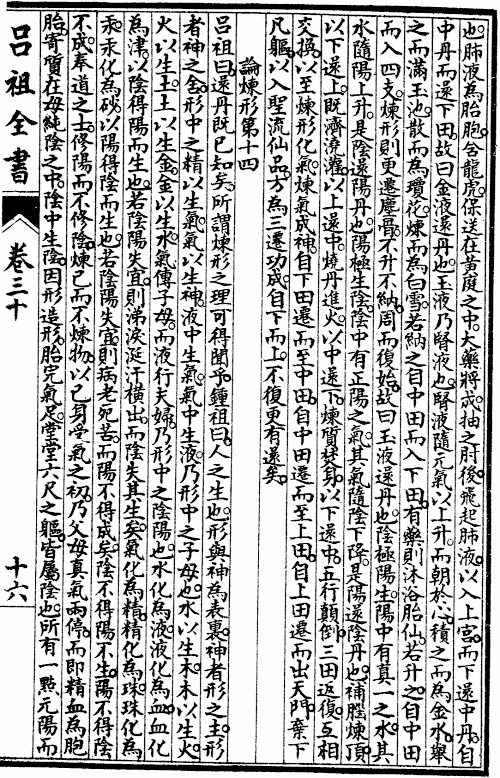 也肺液爲胎胞含龍虎保送在黃庭之中大藥將成抽之肘後飛起肺液以入上宮而下還中丹自
中丹而還下田故曰金液還丹也玉液乃腎液也腎液隨元氣以上升而朝於心積之而爲金水舉
之而滿玉池散而爲瓊花煉而爲白雪若納之自中田而入下田有藥則沐浴胎仙若升之自中田
而入四支煉形則更遷塵骨不升不納周而復始故曰玉液還丹也陰極陽生陽中有真一之水其
水隨陽上升是陰還陽丹也陽極生陰陰中有正陽之氣其氣隨陰下降是陽還陰丹也補腦煉頂
以下還上既濟澆灌以上還中燒丹進火以中還下煉質焚身以下還中五行顛倒三田返復互相
交換以至煉形化氣煉氣成神自下田遷而至中田自中田遷而至上田自上田遷而出天門棄下
凡軀以入聖流仙品方爲三遷功成自下而上不復更有還矣
論煉形第十四
呂祖曰還丹既已知矣所謂煉形之理可得聞乎鍾祖曰人之生也形與神爲表裏神者形之主形
者神之舍形中之精以生氣氣以生神液中生氣氣中生液乃形中之子母也水以生木木以生火
火以生土土以生金金以生水氣傳子母而液行夫婦乃形中之陰陽也水化爲液液化爲血血化
爲津以陰得陽而生也若陰陽失宜則涕淚涎汗橫出而陰失其生矣氣化爲精精化爲珠珠化爲
汞汞化爲砂以陽得陰而生也若陰陽失宜則病老死苦而陽不得成矣陰不得陽不生陽不得陰
不成奉道之士修陽而不修陰煉己而不煉物以己身受氣之初乃父母真氣兩停而即精血爲胞
胎寄質在母純陰之中陰中生陰因形造形胎完氣足堂堂六尺之軀皆屬陰也所有一點元陽而
呂祖全書
卷三十
十六